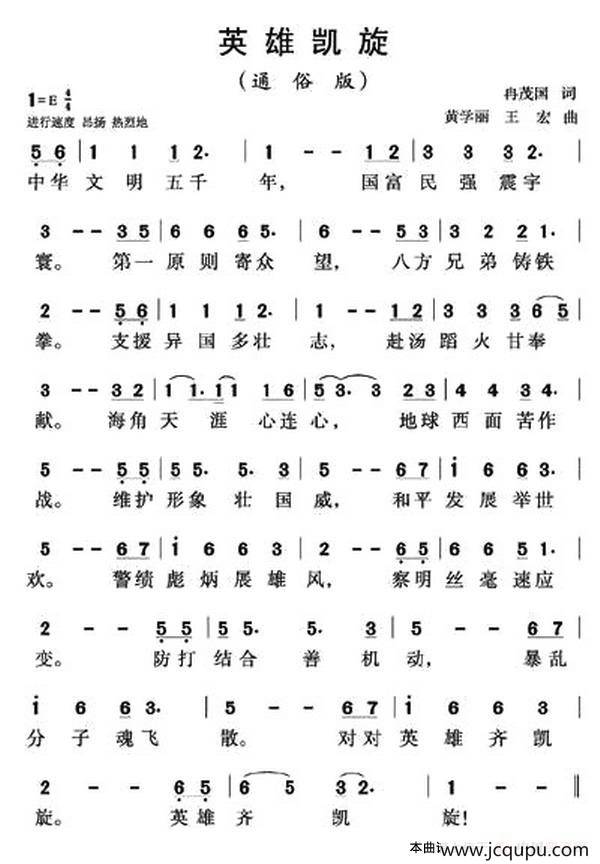 英雄凯旋
(通俗版)
1=E 4/4
冉茂国 词
进行速度 昂扬 热烈地
黄学丽 王宏 曲
5 6 | 1 1 1 2. | 1 - - 1 2 | 3 3 3 3 2. |
中华文明五千年，国富民强震宇
3 - - 3 5 | 6 6 6 6 5. | 5 - - 5 3 | 3 2 2 1. |
寰。第一原则寄众望，八方兄弟铸铁
2 - - 5 6 | 1 1 1 2. | 1 - - 1 2 | 3 3 3 6 6 5 |
拳。支援异国多壮志，赴汤蹈火甘奉
3 - - 3 2 | 1 1. 1 1 1 6 | 5 3. 3 2 3 | 4 4 4 3. |
献。海角天涯心连心，地球西面苦作
5 - - 5 5 | 5. 5 5. 3 | 5 - - 6 7 | 1 6 6 3. |
战。维护形象壮国威，和平发展举世
5 - - 6 7 | 1 6 6 3. | 2 - - 6 5 | 6 6 6 1. |
欢。警绩彪炳展雄风，察明丝毫速应
2 - - 5 5 | 5. 5 5. 3 | 2 - - 6 7 |
变。防打结合善机动，暴乱
1 6 6 3. | 5 - - 6 7 | 1 6 6 6 3 |
分子魂飞散。对对英雄齐凯
2 - - 6 5 | 6 6 5 3 2 | 1 - - ‖
旋。英雄齐凯旋！
本曲
www.jcqupu.com